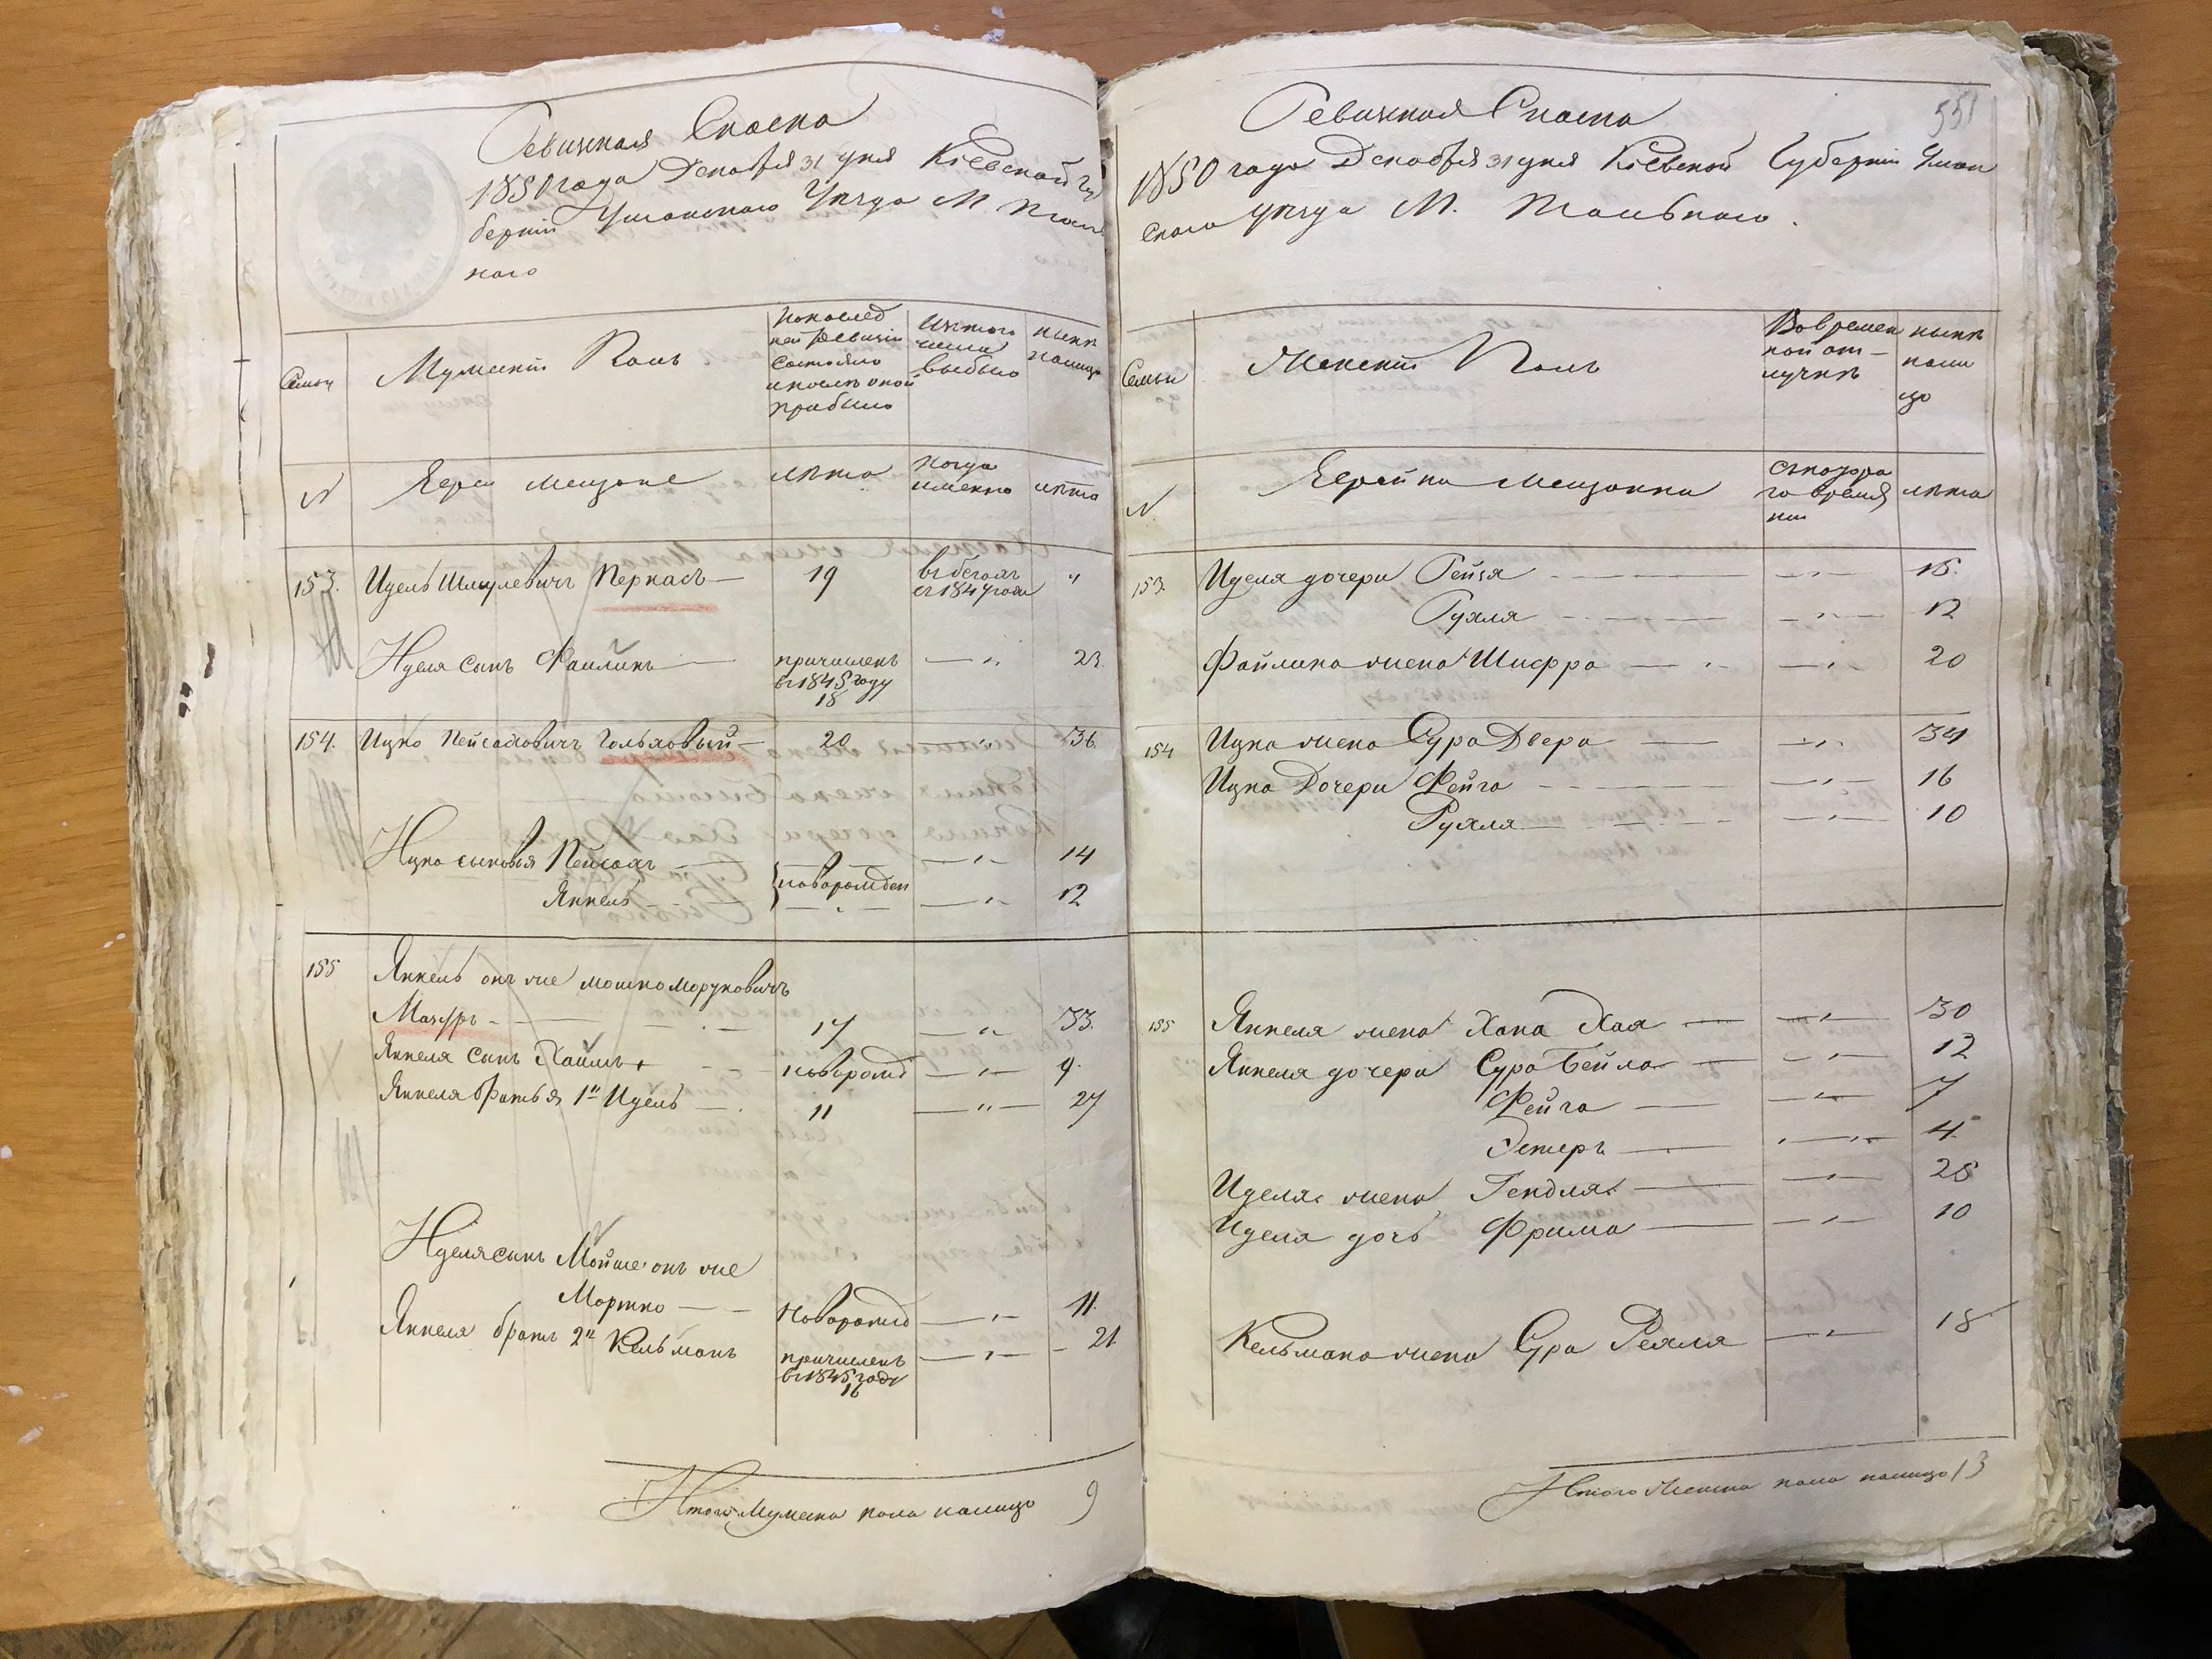 Ревизская Сказка
1850 года Декабря 31 дня Кіевской Гу
берніи Уманского Уезда М. Таль
ного
Семьи
Мужеский Полъ
По послед
ней ревизіи
состояло
и после оной
прибыло
Изъ того
числа
выбыло
ныне
на лицо
N
Евреи мещане
лета
Когда
именно
лета
153. Идель Шмулевичъ Перкасъ — 19 въ бегахъ
съ 1847 года "
Иделя сынъ Файликъ — причисленъ — " 23.
въ 1845 году
18
154. Ицко Пейсаховичъ Гольховый — 20 — " 36.
Ицка сыновья Пейсахъ — новорожден — " — 14
Янкель — — " — 12
155 Янкель онъ же Мошко Мордковичъ
Мазуръ — 17 — " 33.
Янкеля сынъ Хаимъ новорожд — " — 9.
Янкеля братья 1й Идель — 11 — " — 27
Иделя сынъ Мойше онъ же
Мортко — новорожд — " — 11.
Янкеля братъ 2й Кельманъ причисленъ — " — 21.
въ 1845 годе
16
Итого Мужеска пола налицо 9
551
Ревизская Сказка
1850 года Декабря 31 дня Кіевской Губерніи Уман
ского уезда М. Тального.
Семьи
Женский Полъ
Во времен
ной от-
лучке
ныне
нали
цо
N.
Еврейки Мещанки
съ котора
го време
ни
лета
153. Иделя дочери Рейзя — " — 15.
Рухля — " — 12
Файлика жена Шифра — " — 20
154 Ицка жена Сура Двера — " — 34
Ицка Дочери Фейга — " — 16
Рухля — " — 10
155 Янкеля жена Хана Хая — " — 30
Янкеля дочери Сура Бейла — " — 12
Фейга — " — 7
Эстеръ — " — 4.
Иделя жена Гендля — " — 28
Идела дочь Фрима — " — 10
Кельмана жена Сура Рехля — " — 18
Итого Женска пола налицо 13